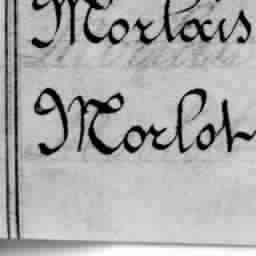 Morlais
Morlot